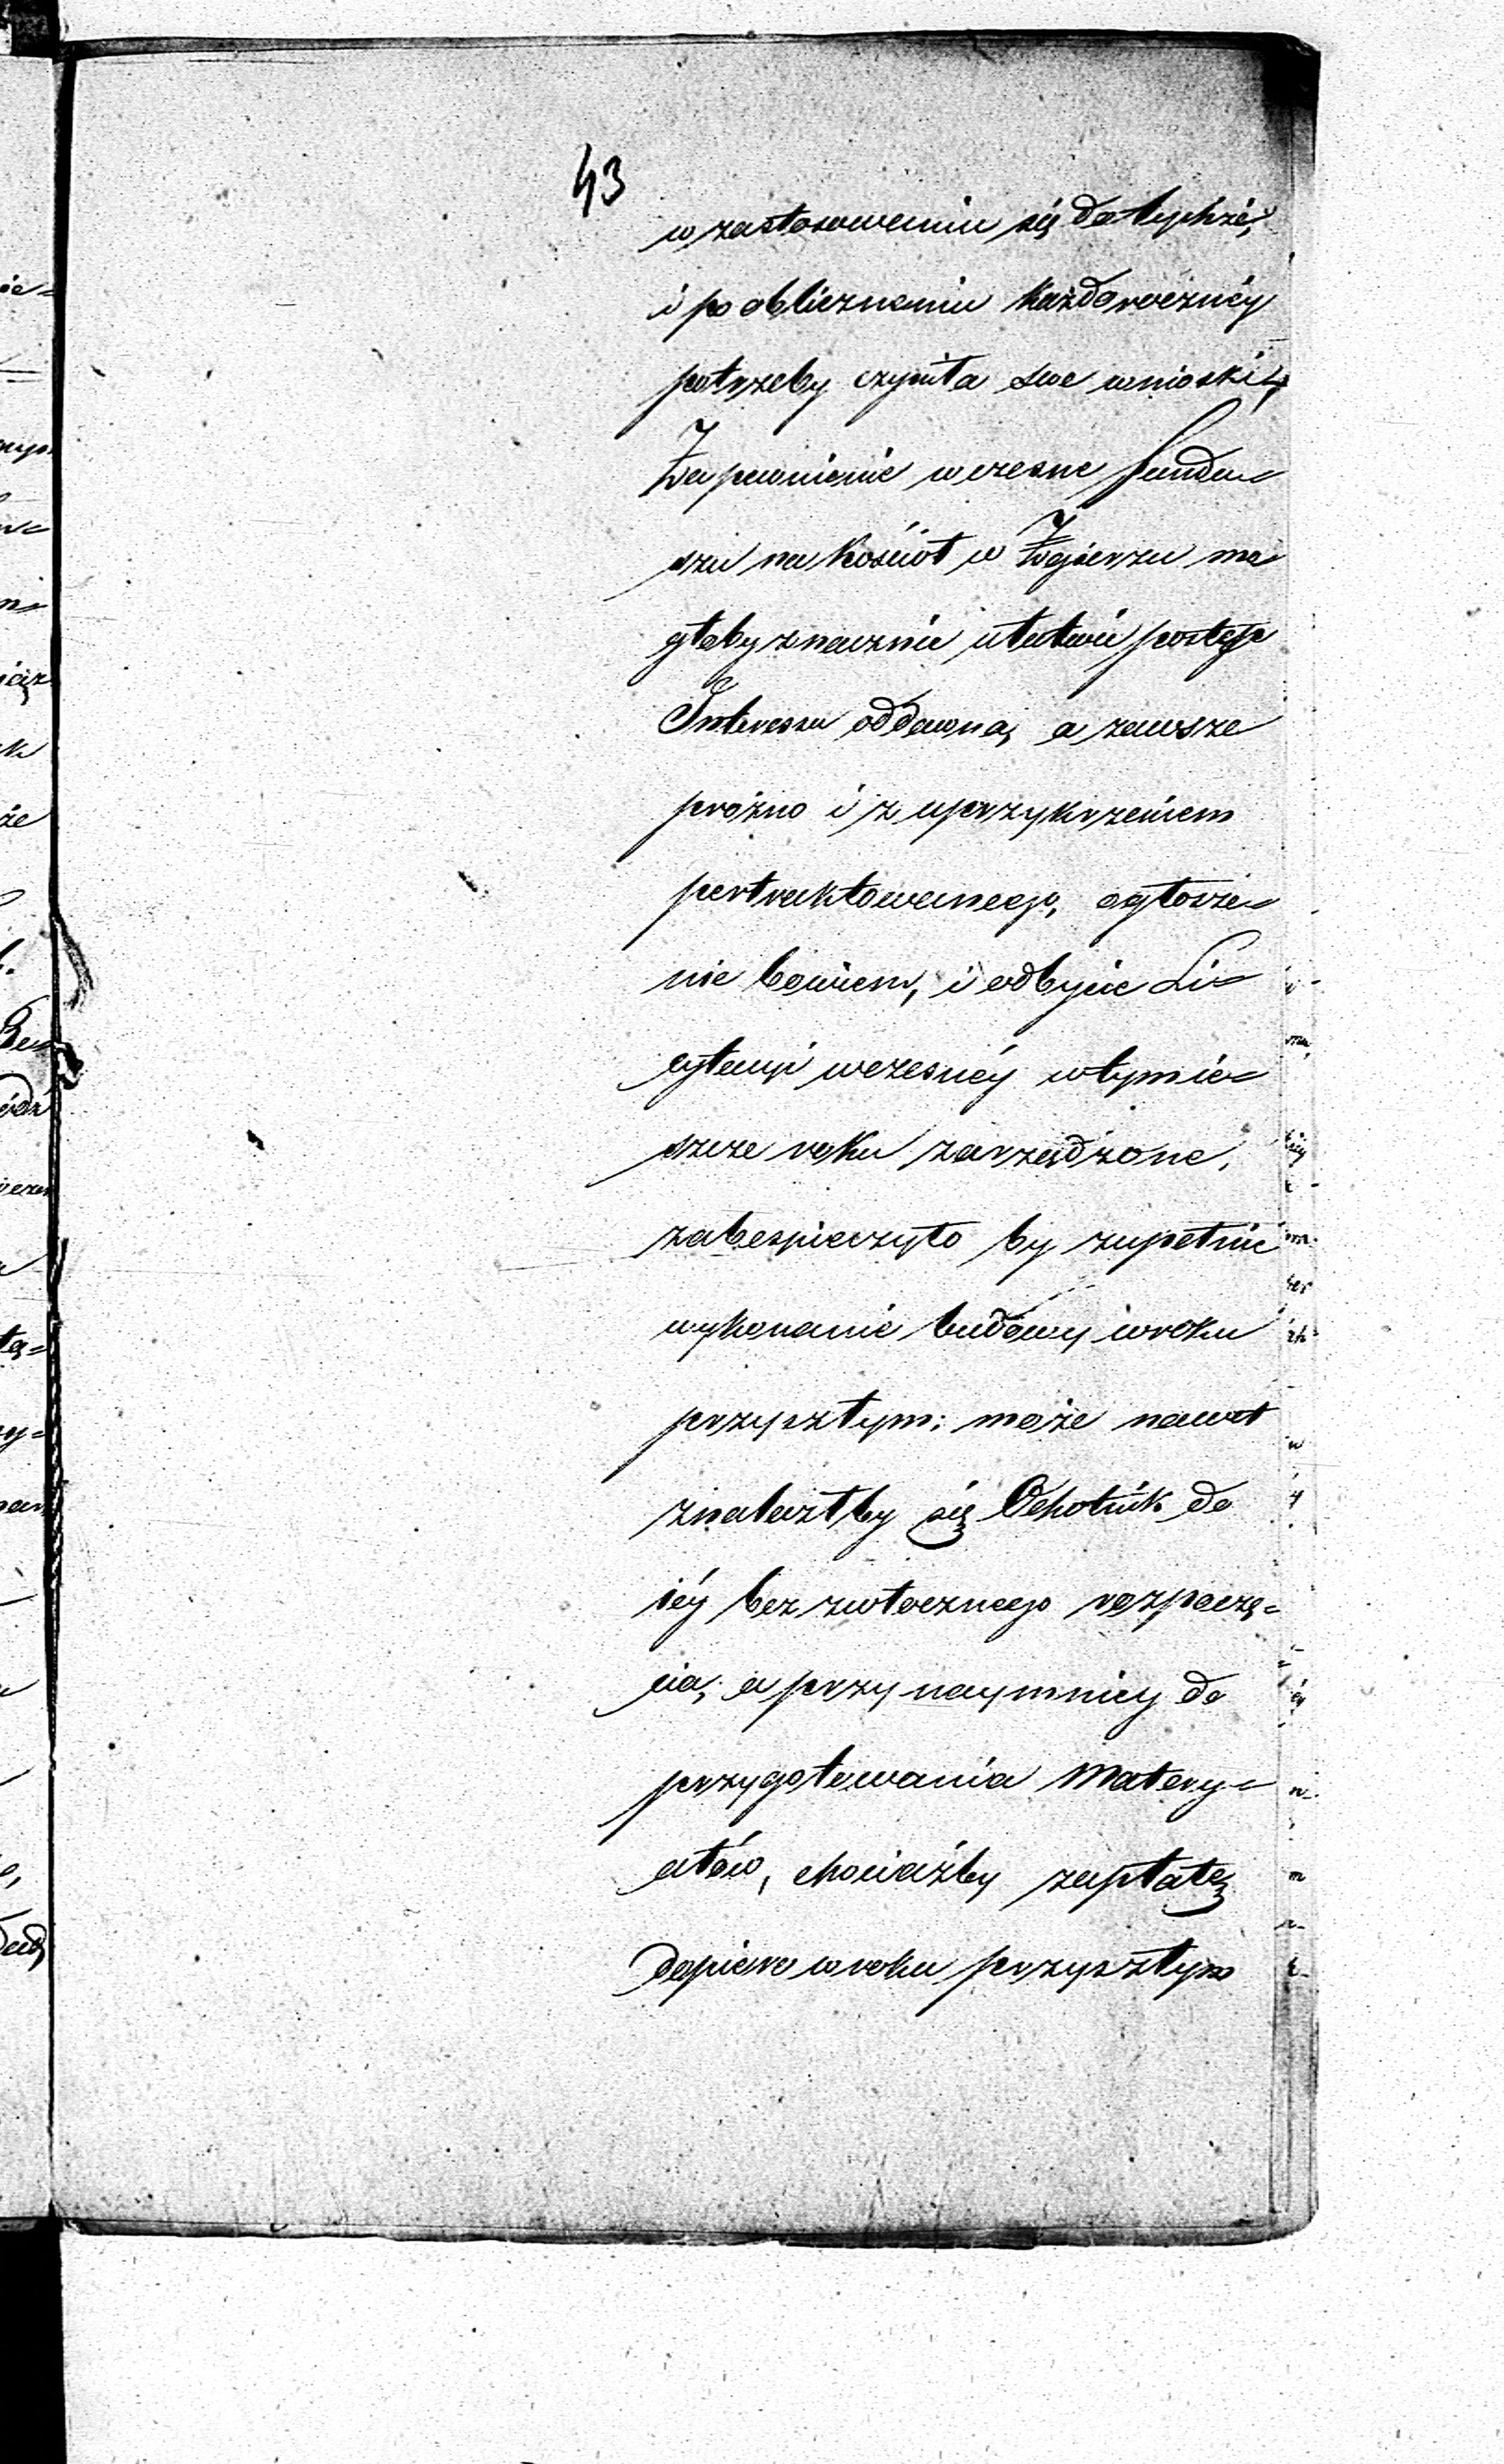 43
w zastosowaniu się do tychże,
i po obliczneniu każdoroczney
potrzeby czyniła swe wnioski,
Zapewnienie wczesne fundu=
szu na kościoł w Zgierzu mo=
głoby znacznie ułatwić postęp
Interessu oddawna, a zawsze
prożno i z uprzykrzeniem
pertraktowanego, ogłosze=
nie bowiem, i odbycie Li=
cytacyi wczesnéy w tym ie=
szcze roku zarządzone,
zabespieczyło by zupełnie
wykonanie budowy w roku
przyszłym: może nawet
znalazłby się Ochotnik do
iéy bezzwłocznego rozpoczę=
cia, a przynaymniey do
przygotowania Matery=
ałów, chociażby zapłatę
dopiero w roku przyszłym